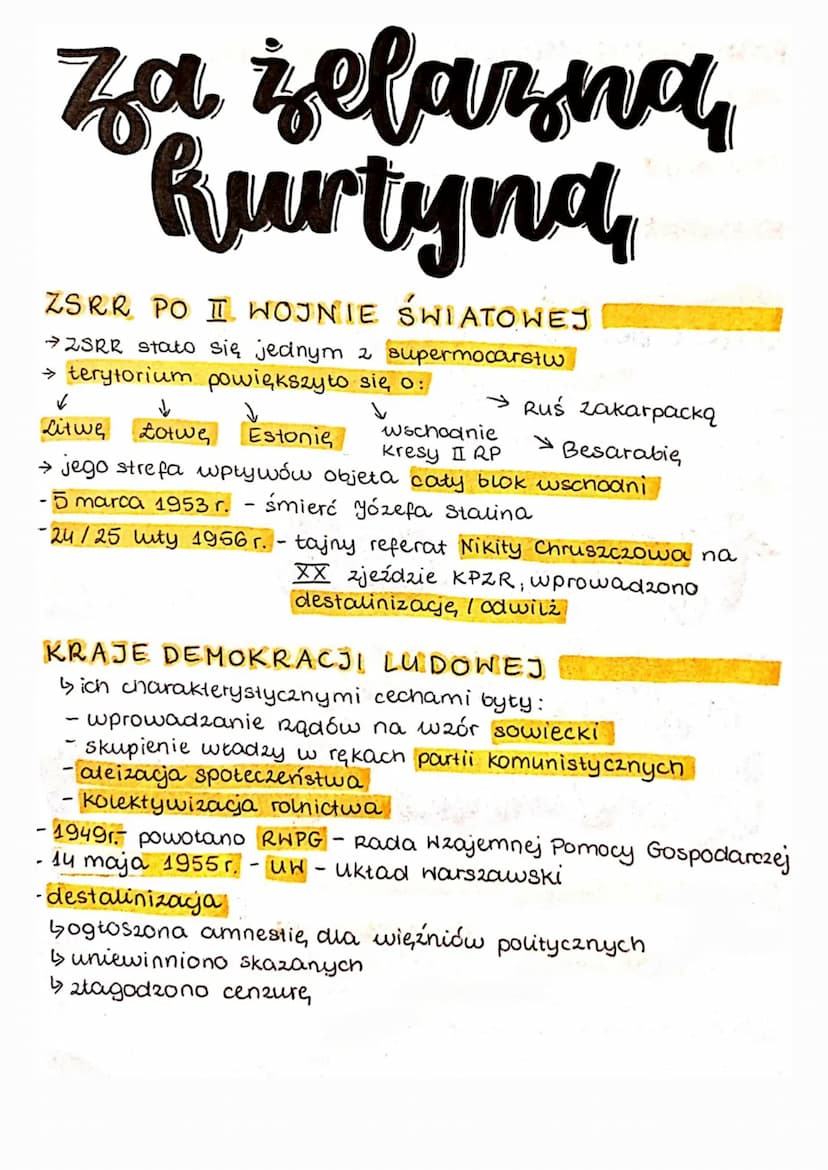 Za żelazną
kurtyną
ZSRR PO II WOJNIE ŚWIATOWEJ
→ ZSRR stało się jednym z supermocarstw
→ terytorium powiększyło się o:
↙ ↓ ↘ ↘ → Ruś zakarpacką
Litwę Łotwę Estonię wschodnie
kresy II RP ↘ Besarabię
→ jego strefa wpływów objęta cały blok wschodni
- 5 marca 1953 r. - śmierć Józefa Stalina
- 24/25 luty 1956 r. - tajny referat Nikity Chruszczowa na
XX zjeździe KPZR, wprowadzono
destalinizację / odwilż
KRAJE DEMOKRACJI LUDOWEJ
↳ ich charakterystycznymi cechami były:
- wprowadzanie rządów na wzór sowiecki
- skupienie władzy w rękach partii komunistycznych
- ateizacja społeczeństwa
- kolektywizacja rolnictwa
- 1949r.- powołano RWPG - Rada Wzajemnej Pomocy Gospodarczej
- 14 maja 1955 r. - UW - Układ Warszawski
- destalinizacja
↳ ogłoszona amnestię dla więźniów politycznych
↳ uniewinniono skazanych
↳ złagodzono cenzurę